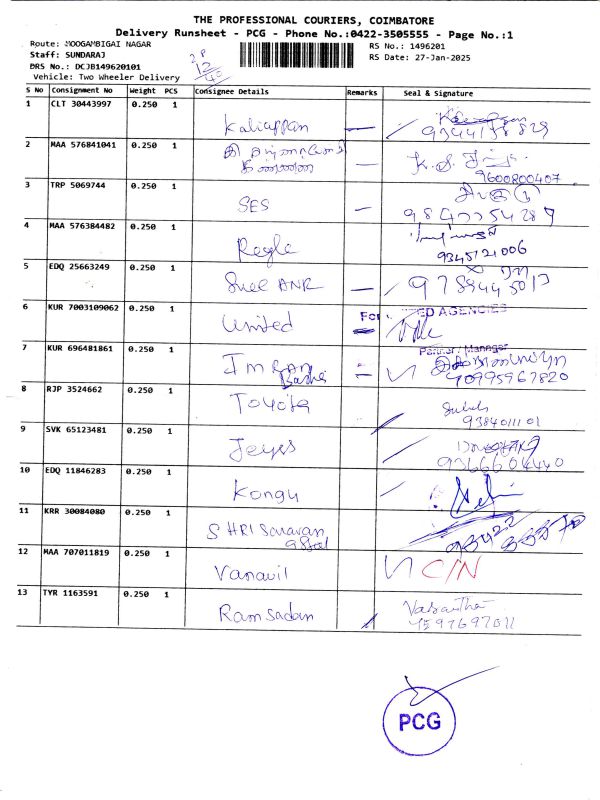 THE PROFESSIONAL COURIERS, COIMBATORE
Delivery Runsheet - PCG - Phone No.:0422-3505555 - Page No.:1
Route: MOOGAMBIGAI NAGAR
RS No.: 1496201
Staff: SUNDARAJ
RS Date: 27-Jan-2025
DRS No.: DCJB149620101
Vehicle: Two Wheeler Delivery
S No Consignment No Weight PCS Consignee Details Remarks Seal & Signature
1 CLT 30443997 0.250 1
Kaliappan
2 MAA 576841041 0.250 1
9600800407
3 TRP 5069744 0.250 1
SES
4 MAA 576384482 0.250 1
9345121006
5 EDQ 25663249 0.250 1
Sree ANR
6 KUR 7003109062 0.250 1
ED AGENCIES
United
Partner / Manager
7 KUR 696481861 0.250 1
IMRAN
Basha
8 RJP 3524662 0.250 1
Toyota
9384011101
9 SVK 65123481 0.250 1
Jeyes
9366604440
10 EDQ 11846283 0.250 1
Kongu
11 KRR 30084080 0.250 1
SHRI Saravan
12 MAA 707011819 0.250 1
Vanavil C/N
13 TYR 1163591 0.250 1
Ramsadan
Vasantha
PCG